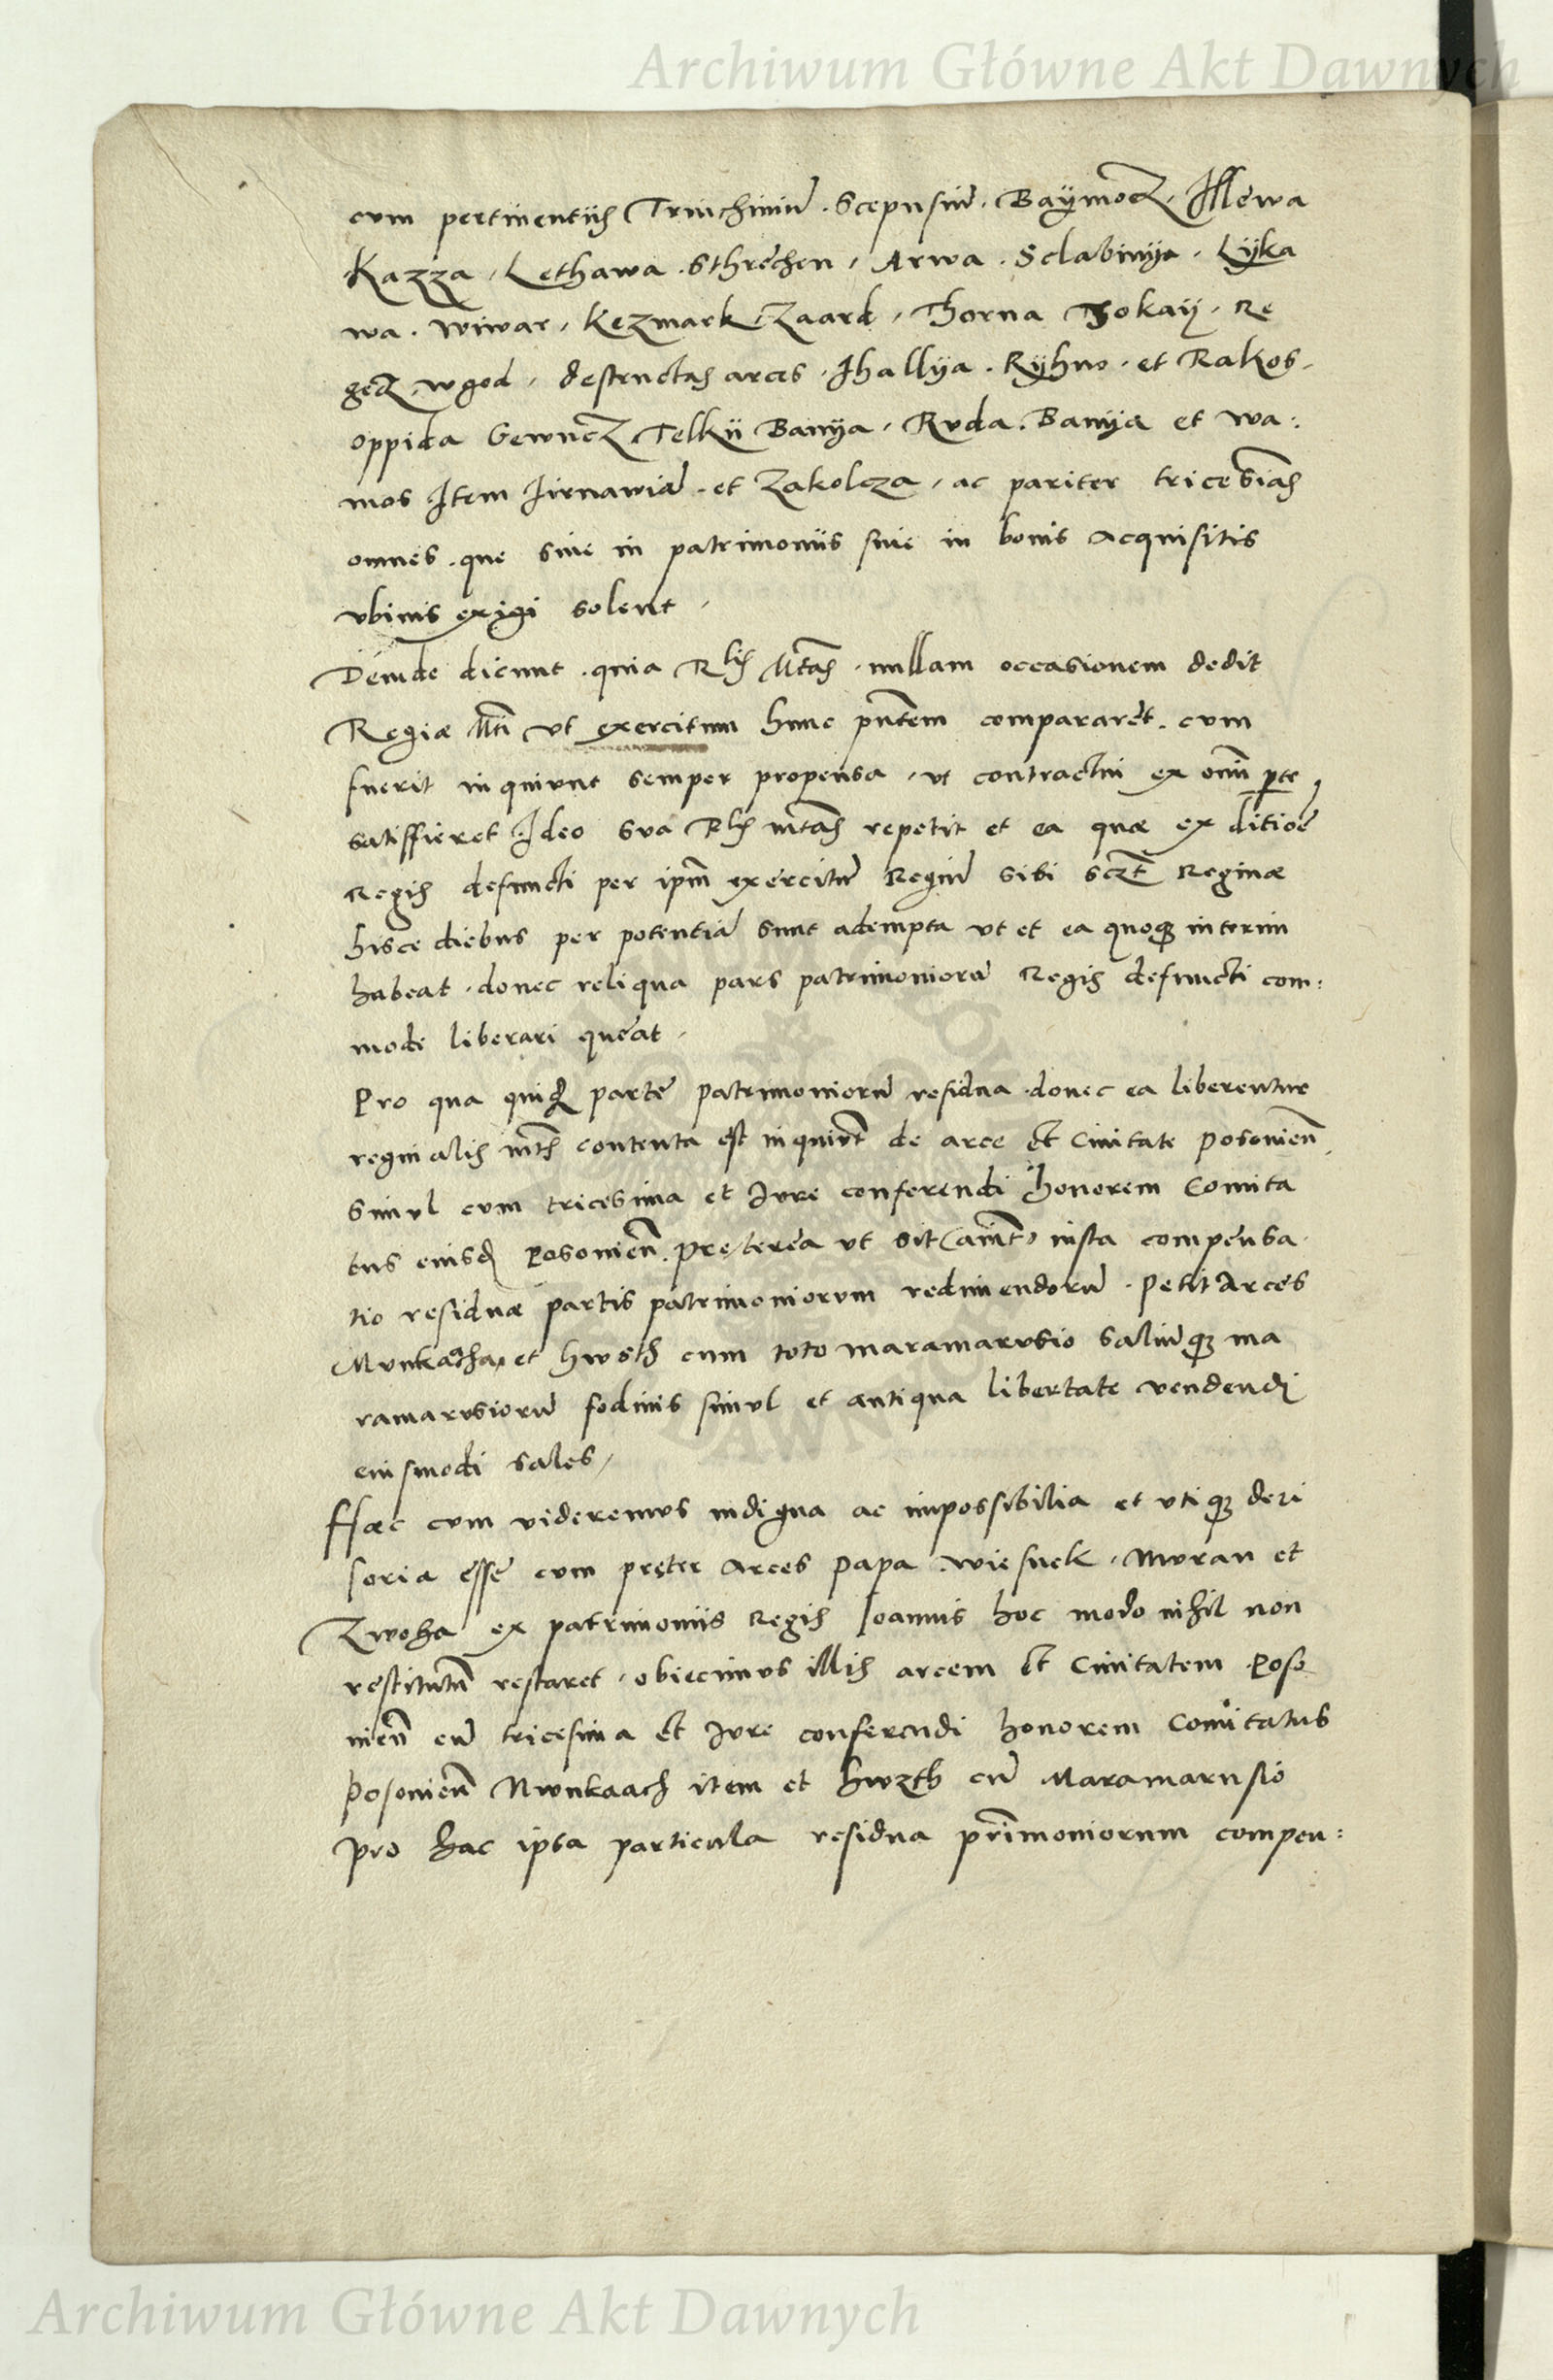 Archiwum Główne Akt Dawnych
cum pertinentiis Trinchiniũ . Scepusiũ . Baÿmocz . Illewa
Kazza , Lethawa . Sthrechen , Arwa . Sclabinÿa . Lÿka
wa . Wiwar , Kezmark , Zaard , Thorna Thokaÿ . Re
gecz , wgod , destructas arces . Jhallÿa . Rÿhno . et Rakos .
oppida Gewncz Telkii Banÿa , Ruda . Banÿa et Va :
mos Item Tirnawiã . et Zakolcza , ac pariter tricesĩas
omnes . que siue in patrimoniis siue in bonis acquisitis
vbiuis exigi solent ,
Deinde dicunt . quia Rlis Mtas . nullam occasionem dedit
Regiæ Mti vt exercitum hunc pñtem compararet . cum
fuerit inquiunt semper propensa , vt contractui ex omñ pte
satisfieret . Ideo sua Rlis mtas repetit et ea quæ ex ditiõe
Regis defuncti per ipm̃ exercitũ Regiũ sibi sczt Reginæ
hisce diebus per potentiã sunt adempta vt et ea quoq3 interim
habeat . donec reliqua pars patrimoniorũ Regis defuncti com :
mode liberari queat .
Pro qua quid parte patrimoniorũ residua . donec ea liberentur
reginalis mts contenta est inquiũt de arce et Ciuitate posonieñ .
simul cum tricesima et Iure conferendi honorem Comita
tus eiusd Posonieñ . Preterea vt sit (aiũt) iusta compensa .
tio residuæ partis patrimoniorum redimendorũ . Petit Arces
Munkacha , et Hwsth cum toto maramarusio saliũq3 ma
ramarusiorũ fodinis simul et antiqua libertate vendendi
eiusmodi sales ,
Hæc cum videremus indigna ac impossibilia et vtiq3 deri
soria esse cum preter Arces Papa . wiesnek . Muran et
Zwoha ex patrimoniis Regis Joannis hoc modo nihil non
restitutũ restaret . obiecimus illis arcem et Ciuitatem . Poso
nieñ cũ tricesima et Iure conferendi honorem Comitatus
Posonieñ Mwnkaach item et Hwzth cũ Maramarusio
pro hac ipsa particula residua pr̃imoniorum compen :
Archiwum Główne Akt Dawnych